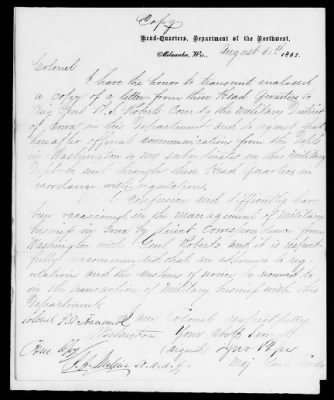 Copy
Head-Quarters, Department of the Northwest,
Milwaukee, Wis., August 31st 1863.
Colonel
I have the honor to transmit enclosed
a copy of a letter from these Head Quarters to
Brig Genl B. S. Roberts Comdg the Military District
of Iowa in this Department and to request that
hereafter official communications from the Depts
in Washington to my subordinates in this Military
Dept be sent through these Head Quarters in
accordance with regulations.
Confusion and difficulty have
been occasioned in the management of Military
business in Iowa by direct Correspondence from
Washington with Genl Roberts and it is respect-
fully recommended that an adherence to reg-
ulations and the customs of service be
in the transaction of Military business with this
Department.
I am Colonel respectfully
Colonel E. D. Townsend Your Obdt Servt
Washington (signed) Jno Pope
True Copy Maj Genl Comdg
A. A. A. G.